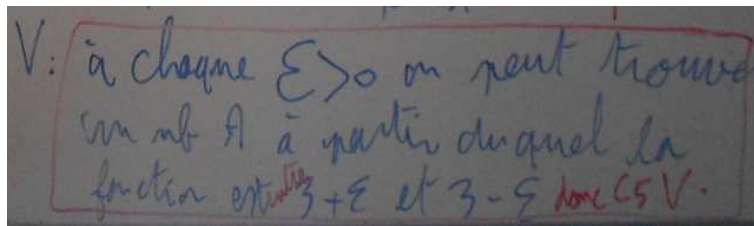 V: à chaque ε>0 on peut trouve
un nb A à partir duquel la
fonction est entre 3+ε et 3-ε donc C5 V.